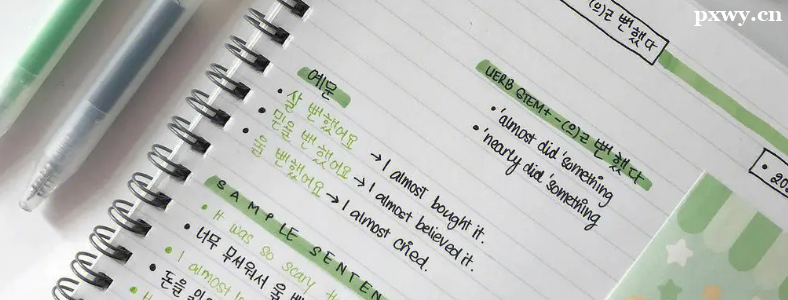 pxwy.cn
(으)ㄹ 뻔했다
VERB STEM + -(으)ㄹ 뻔했다
• 'almost did' something
• 'nearly did' something
예문
• 살 뻔했어요 → I almost bought it.
• 믿을 뻔했어요 → I almost believed it.
• 울 뻔했어요 → I almost cried.
SAMPLE SENTEN
• It was so scary
• 너무 무서워서 울
• I almost
• 돈을